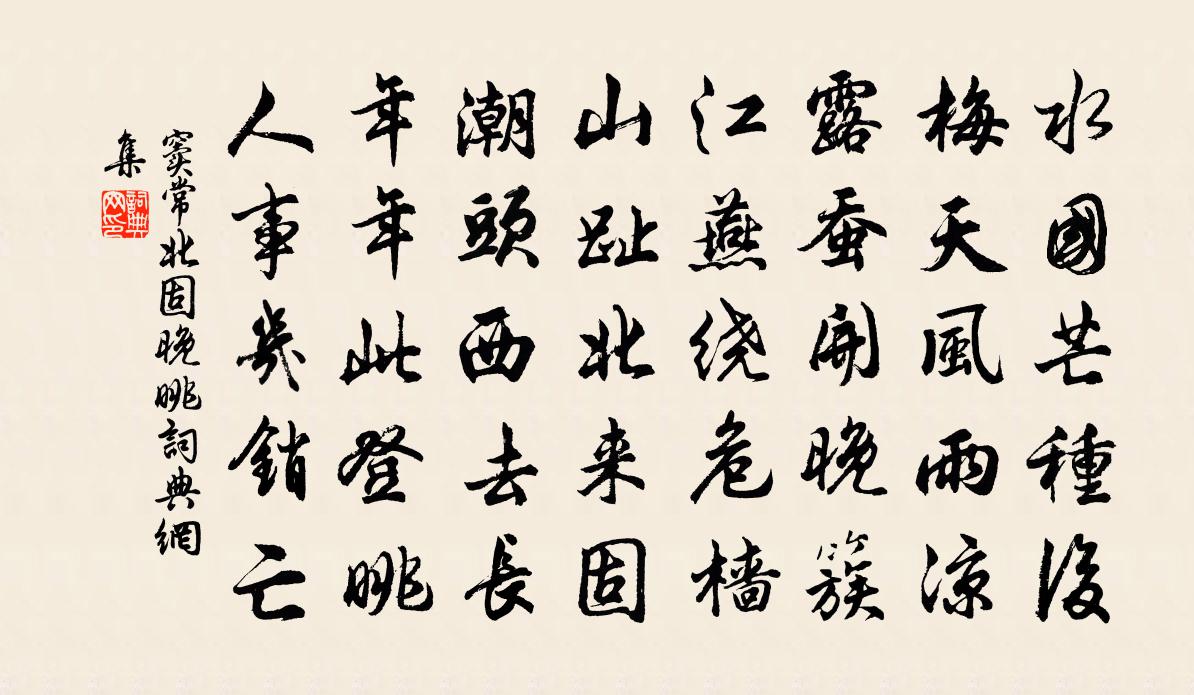 水國芒種後
梅天風雨涼
露蚕開晚簇
江燕绕危檣
山趾北来固
潮頭西去長
年年此登眺
人事幾銷亡
窦常北固晚眺詞典網
集
詞典網印